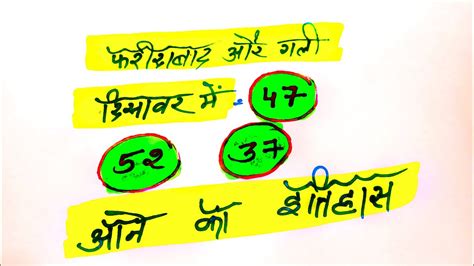 फरीदाबाद और गली
दिसावर में - 47
52 37
आने का इतिहास